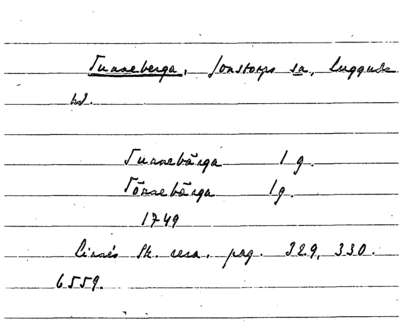 Tunneberga, Jonstorps sn, Luggude
hd.
Tunnebärga 1 g.
Tönnebärga 1 g.
1749
Linnés Sk. resa. pag. 329, 330.
6559.